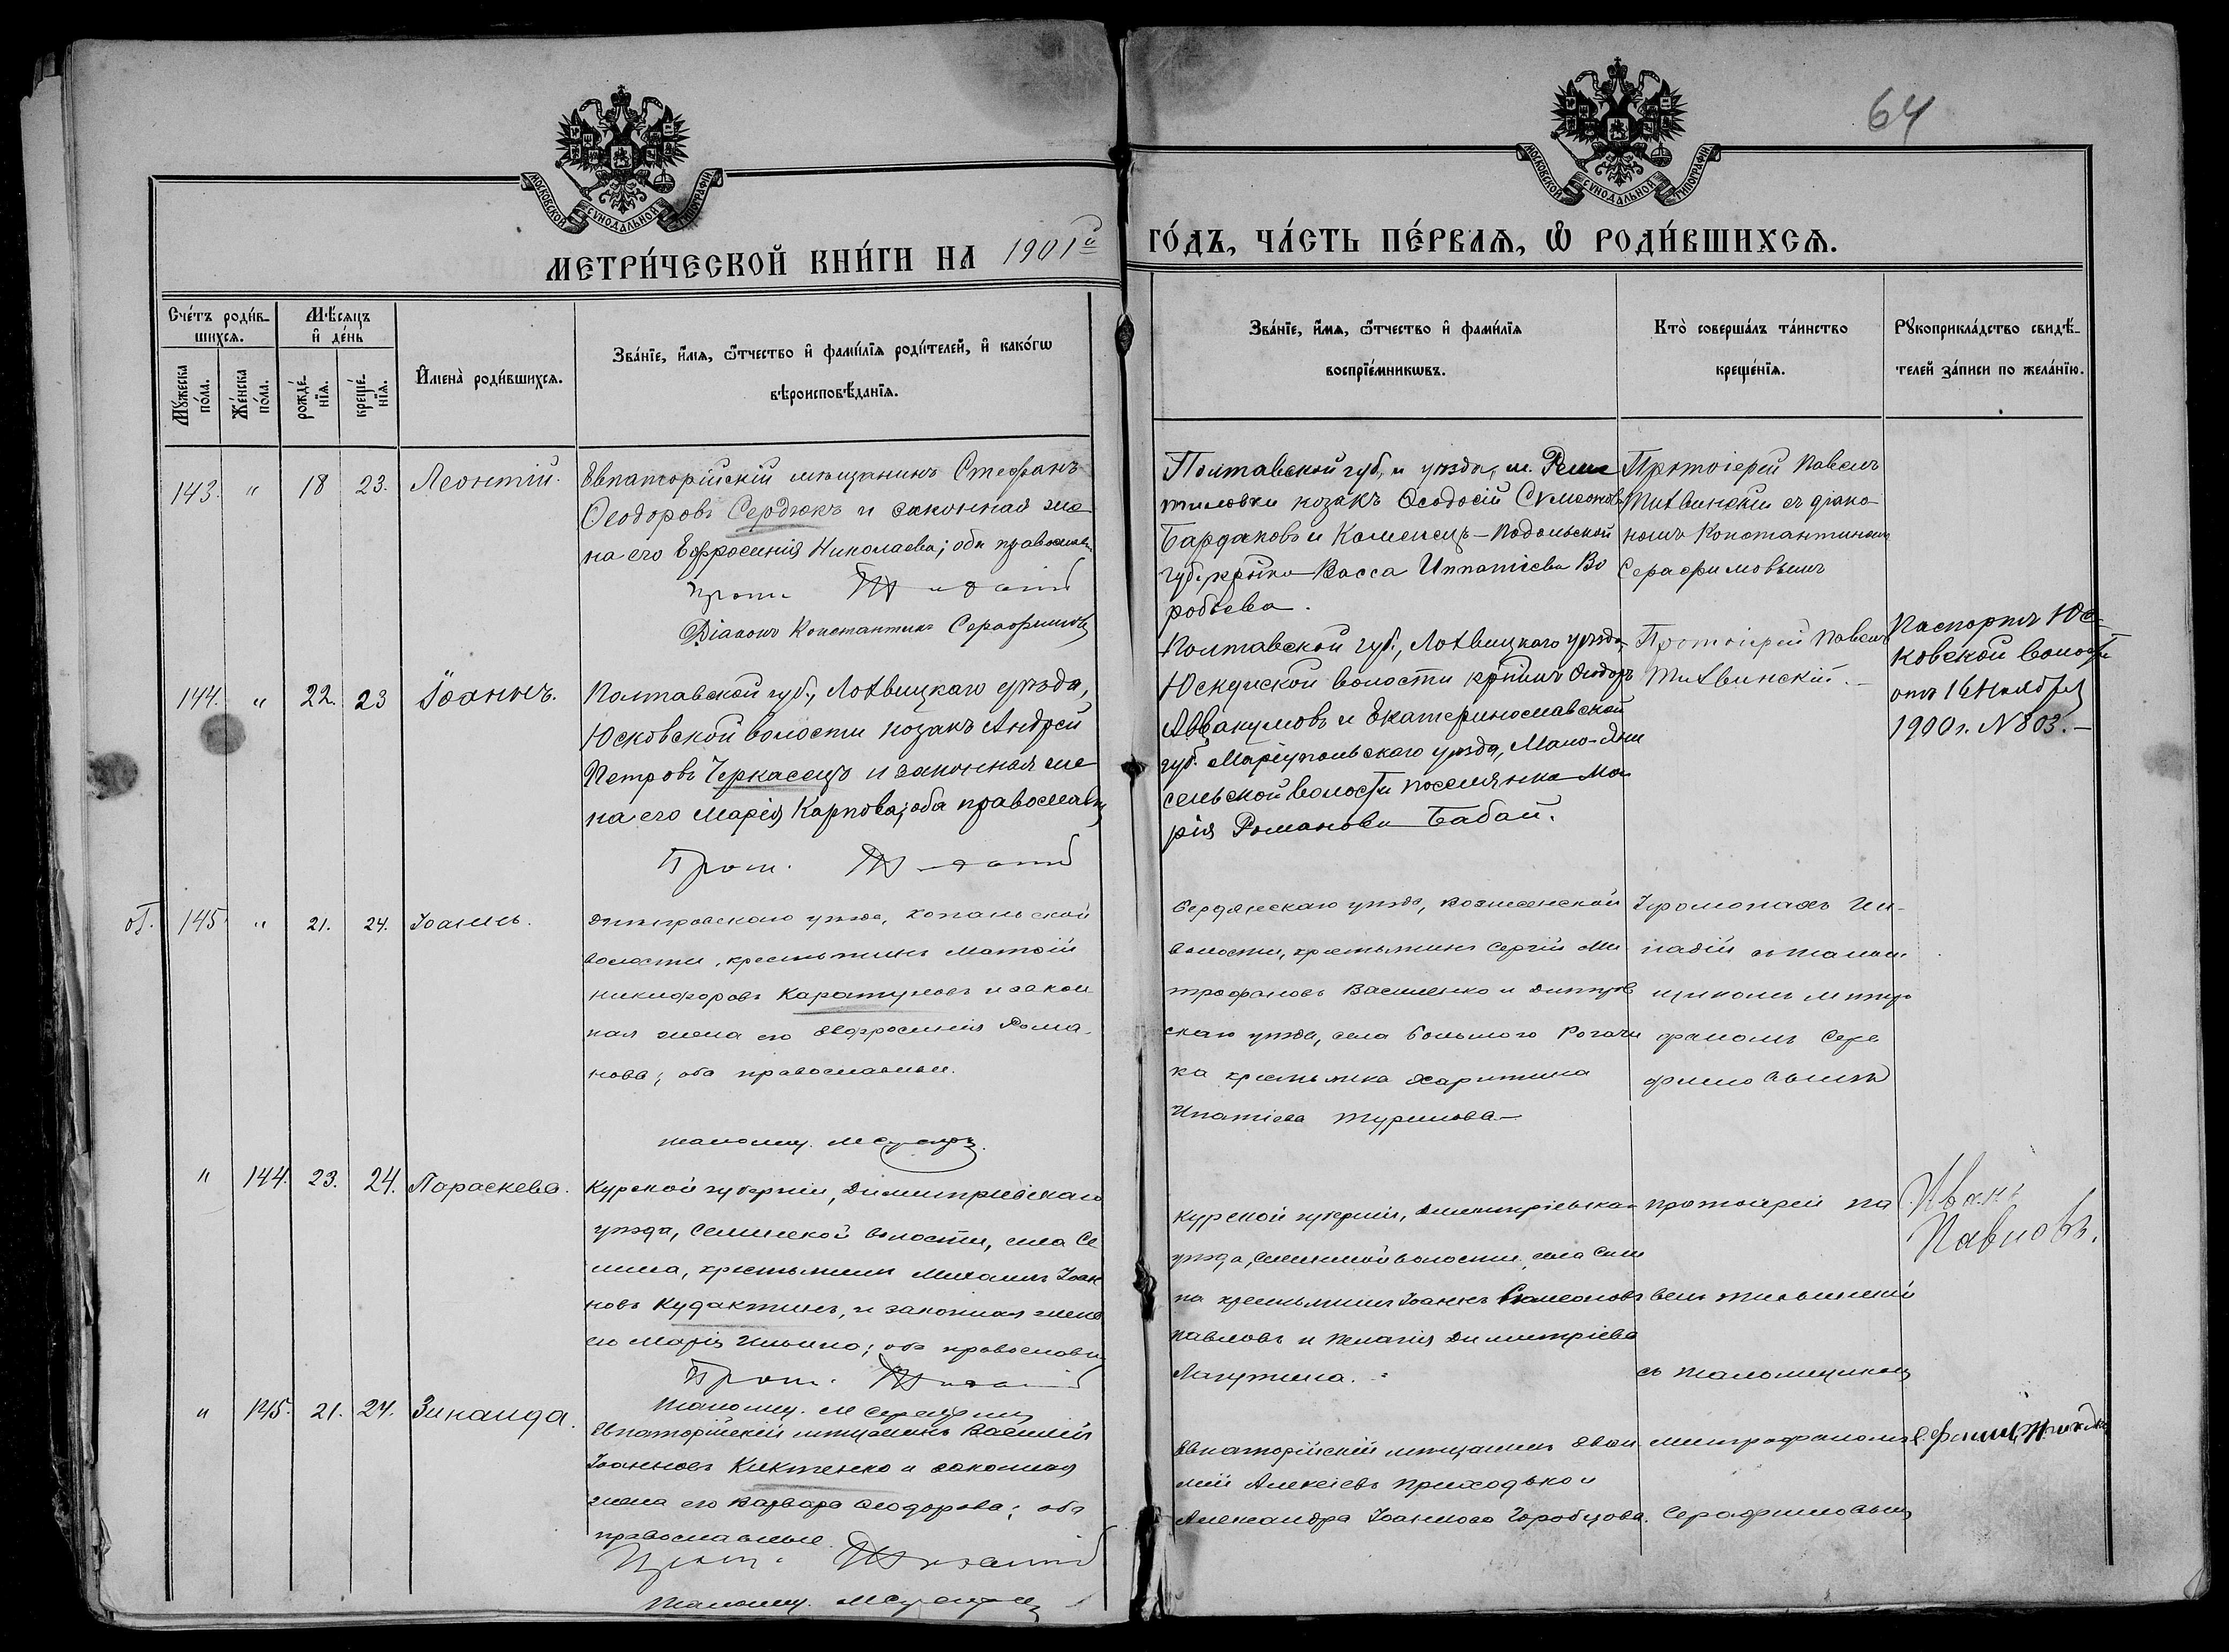 64
МОСКОВСКОЙ СѴНОДАЛЬНОЙ ТИПОГРАФІИ
МОСКОВСКОЙ СѴНОДАЛЬНОЙ ТИПОГРАФІИ
МЕТРИ́ЧЕСКОЙ КНИ́ГИ НА 1901й ГО́ДЪ, ЧА́СТЬ ПЕ́РВАѦ, Ѡ҆ РОДИ́ВШИХСѦ.
Сче́тъ роди́в-
шихсѧ.
Мꙋ́жеска по́ла.
Же́нска по́ла.
Мѣ́сѧцъ
и҆ де́нь
рожде́-
нїѧ.
креще́-
нїѧ.
И҆мена̀ роди́вшихсѧ.
Зва́нїе, и҆́мѧ, ѻ҆́тчество и҆ фами́лїѧ роди́телей, и҆ како́гѡ
вѣроисповѣ́данїѧ.
Зва́нїе, и҆́мѧ, ѻ҆́тчество и҆ фами́лїѧ
воспрїе́мникѡвъ.
Кто̀ соверша́лъ та́инство
креще́нїѧ.
Рꙋкоприкла́дство свидѣ́-
телей за́писи по жела́нїю.
143. " 18 23. Леонтій.
Евпаторійскій мѣщанинъ Стефанъ
Ѳеодоровъ Сердюкъ и законная же-
на его Ефросинія Николаева; оба православн.
Прот.
Діаконъ Константинъ Серафимовъ
Полтавской губ., и уѣзда, м. Реше
тиловки козакъ Ѳеодосій Сѵмеоновъ
Бардаковъ и Каменецъ-Подольской
губ. кр-нка Васса Ипатіева Во
робьева.
Протоіерей Павелъ
Тихвинскій съ діако-
номъ Константиномъ
Серафимовымъ
144. " 22. 23 Іоаннъ.
Полтавской губ., Лохвицкаго уѣзда,
Юсковской волости козакъ Андрей
Петровъ Черкасецъ и законная же
на его Марія Карпова; оба православн
Прот.
Полтавской губ., Лохвицкаго уѣзда,
волости Ѳеодоръ
Аввакумовъ и Екатеринославской
губ. Маріупольскаго уѣзда, Мало-Яни
сельской волости поселянка Ма
рія Романова Бабай.
Протоіерей Павелъ
Тихвинскій.-
Паспортъ Юс-
ковской волости
отъ 16 Ноября
1900 г. N 803.-
об. 145 " 21. 24. Іоаннъ.
Днѣпровскаго уѣзда, Копаньской
волости, крестьянинъ Матѳій
Никифоровъ и закон
ная жена его Евфросинія Рома-
нова; оба православные.
псаломщ.
Бердянскаго уѣзда, Вознесенской
волости, крестьянинъ Сергій Ми
трофановъ Василенко и Днѣпров
скаго уѣзда, села Большого Рогачи
ка крестьянка Харитина
Ипатіева
Іеромонахъ
съ псалом
щикомъ Митро
фаномъ Сера
фимовымъ
" 144. 23. 24. Параскева.
Курской губерніи, Димитріевскаго
уѣзда, волости, села Се
, крестьянинъ Михаилъ Іоан
новъ Кудактинъ, и законная жена
его Марія Ильина; оба православн
Прот.
псаломщ. М Серафим
Курской губерніи, Димитріевскаго
уѣзда, волости, села
крестьянинъ Іоаннъ Симеоновъ
Павловъ и Пелагія Димитріева
Лагутина.
Протоіерей Па
велъ Тихвинскій
съ псаломщикомъ
Иванъ
Павловъ.
" 145. 21. 24. Зинаида.
Евпаторійскій мѣщанинъ Василій
Іоанновъ Киктенко и законная
жена его Варвара Ѳеодорова; оба
православные.
Прот.
псаломщ.
Евпаторійскій мѣщанинъ
Алексіевъ Приходько и
Александра Іоаннова Горобцова.
Митрофаномъ
Серафимовым